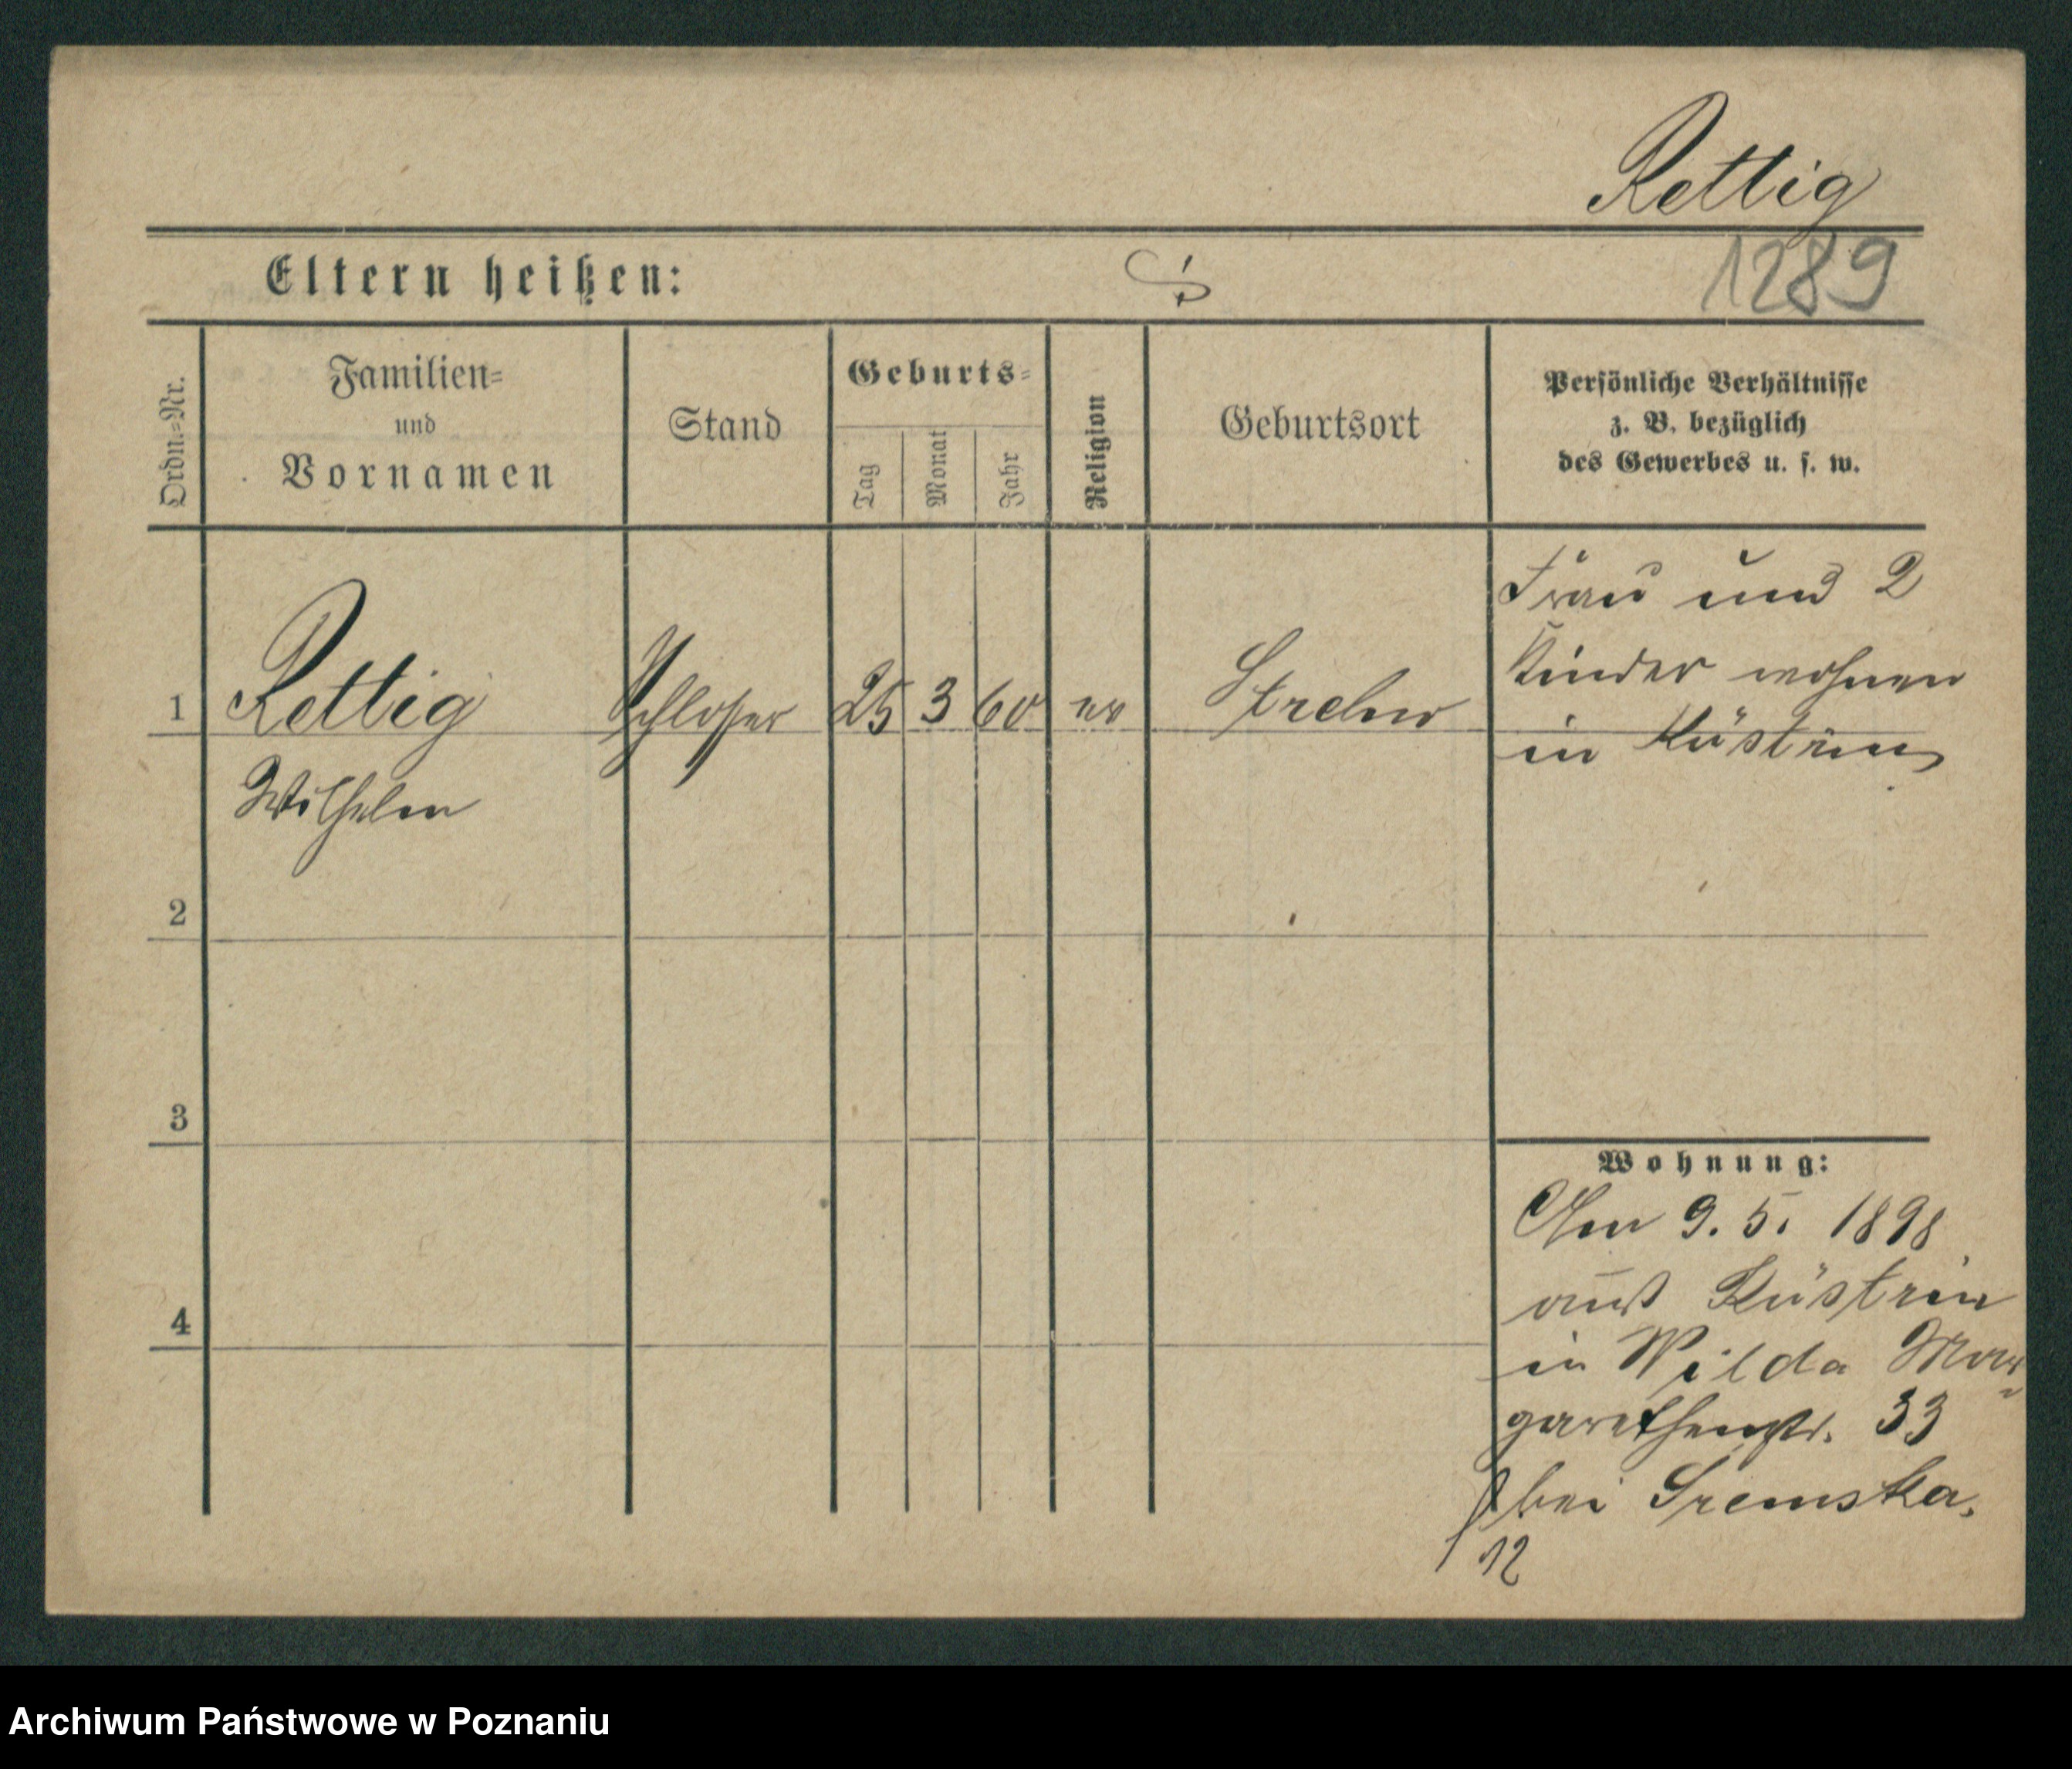 Rettig
1289
Eltern heißen:
Ordn.=Nr.
Familien=
und
Vornamen
Stand
Geburts=
Tag
Monat
Jahr
Religion
Geburtsort
Persönliche Verhältnisse
z. B. bezüglich
des Gewerbes u. s. w.
1
Rettig
Wilhelm
Schlosser
25
3
60
ev
Frau und 2
Kinder wohnen
in Küstrin
2
3
4
Wohnung:
Am 9. 5. 1898
aus Küstrin
in Wilda Mar=
garethenstr. 33
bei Sremska.
12
Archiwum Państwowe w Poznaniu